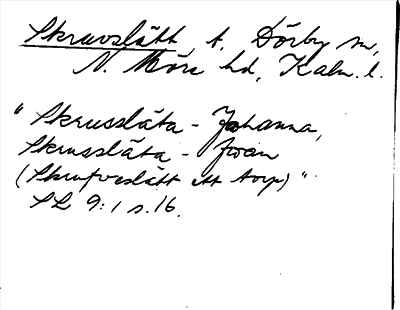 Skruvslätt, t. Dörby sn,
N. Möre hd, Kalm. l.
"Skrussläta - Johanna,
Skrussläta - Swän
(Skrufveslätt ett torp)"
SL 9:1 s. 16.